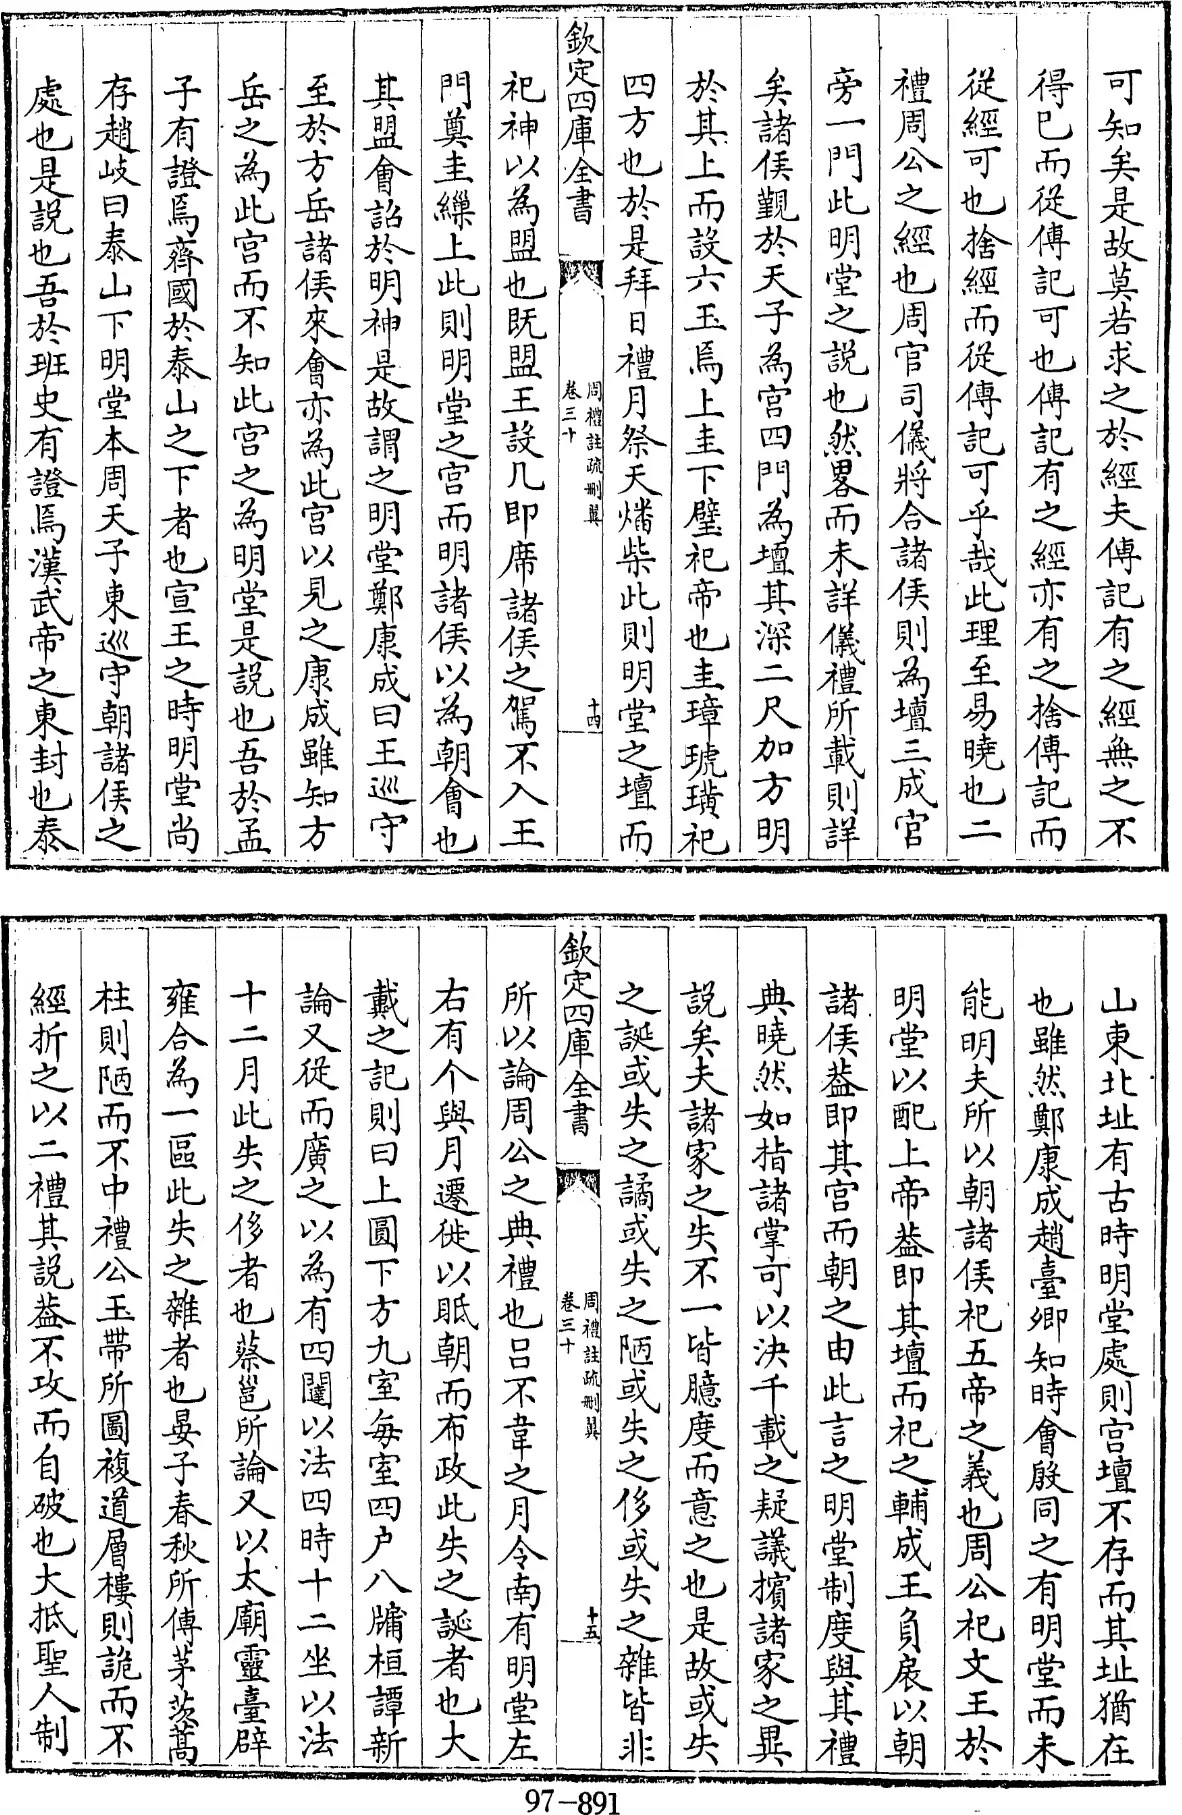 可知矣是故莫若求之於經夫傳記有之經無之不
得已而從傳記可也傳記有之經亦有之捨傳記而
從經可也捨經而從傳記可乎哉此理至易曉也二
禮周公之經也周官司儀將合諸侯則為壇三成宫
旁一門此明堂之説也然畧而未詳儀禮所載則詳
矣諸侯覲於天子為宫四門為壇其深二尺加方明
於其上而設六玉焉上圭下璧祀帝也圭璋琥璜祀
四方也於是拜日禮月祭天燔柴此則明堂之壇而
欽定四庫全書
周禮註疏刪翼
卷三十
十四
祀神以為盟也既盟王設几即席諸侯之駕不入王
門奠圭繅上此則明堂之宫而明諸侯以為朝會也
其盟會詔於明神是故謂之明堂鄭康成曰王巡守
至於方岳諸侯來會亦為此宫以見之康成雖知方
岳之為此宫而不知此宫之為明堂是説也吾於孟
子有證焉齊國於泰山之下者也宣王之時明堂尚
存趙岐曰泰山下明堂本周天子東巡守朝諸侯之
處也是説也吾於班史有證焉漢武帝之東封也泰
山東北址有古時明堂處則宫壇不存而其址猶在
也雖然鄭康成趙臺卿知時會殷同之有明堂而未
能明夫所以朝諸侯祀五帝之義也周公祀文王於
明堂以配上帝葢即其壇而祀之輔成王負扆以朝
諸侯葢即其宫而朝之由此言之明堂制度與其禮
典曉然如指諸掌可以決千載之疑議擯諸家之異
説矣夫諸家之失不一皆臆度而意之也是故或失
之誕或失之譎或失之陋或失之侈或失之雜皆非
欽定四庫全書
周禮註疏刪翼
卷三十
十五
所以論周公之典禮也吕不韋之月令南有明堂左
右有个與月遷徙以眂朝而布政此失之誕者也大
戴之記則曰上圓下方九室每室四户八牖桓譚新
論又從而廣之以為有四闥以法四時十二坐以法
十二月此失之侈者也蔡邕所論又以太廟靈臺辟
雍合為一區此失之雜者也晏子春秋所傳茅茨蒿
柱則陋而不中禮公玉帶所圖複道層樓則詭而不
經折之以二禮其説葢不攻而自破也大抵聖人制
97-891